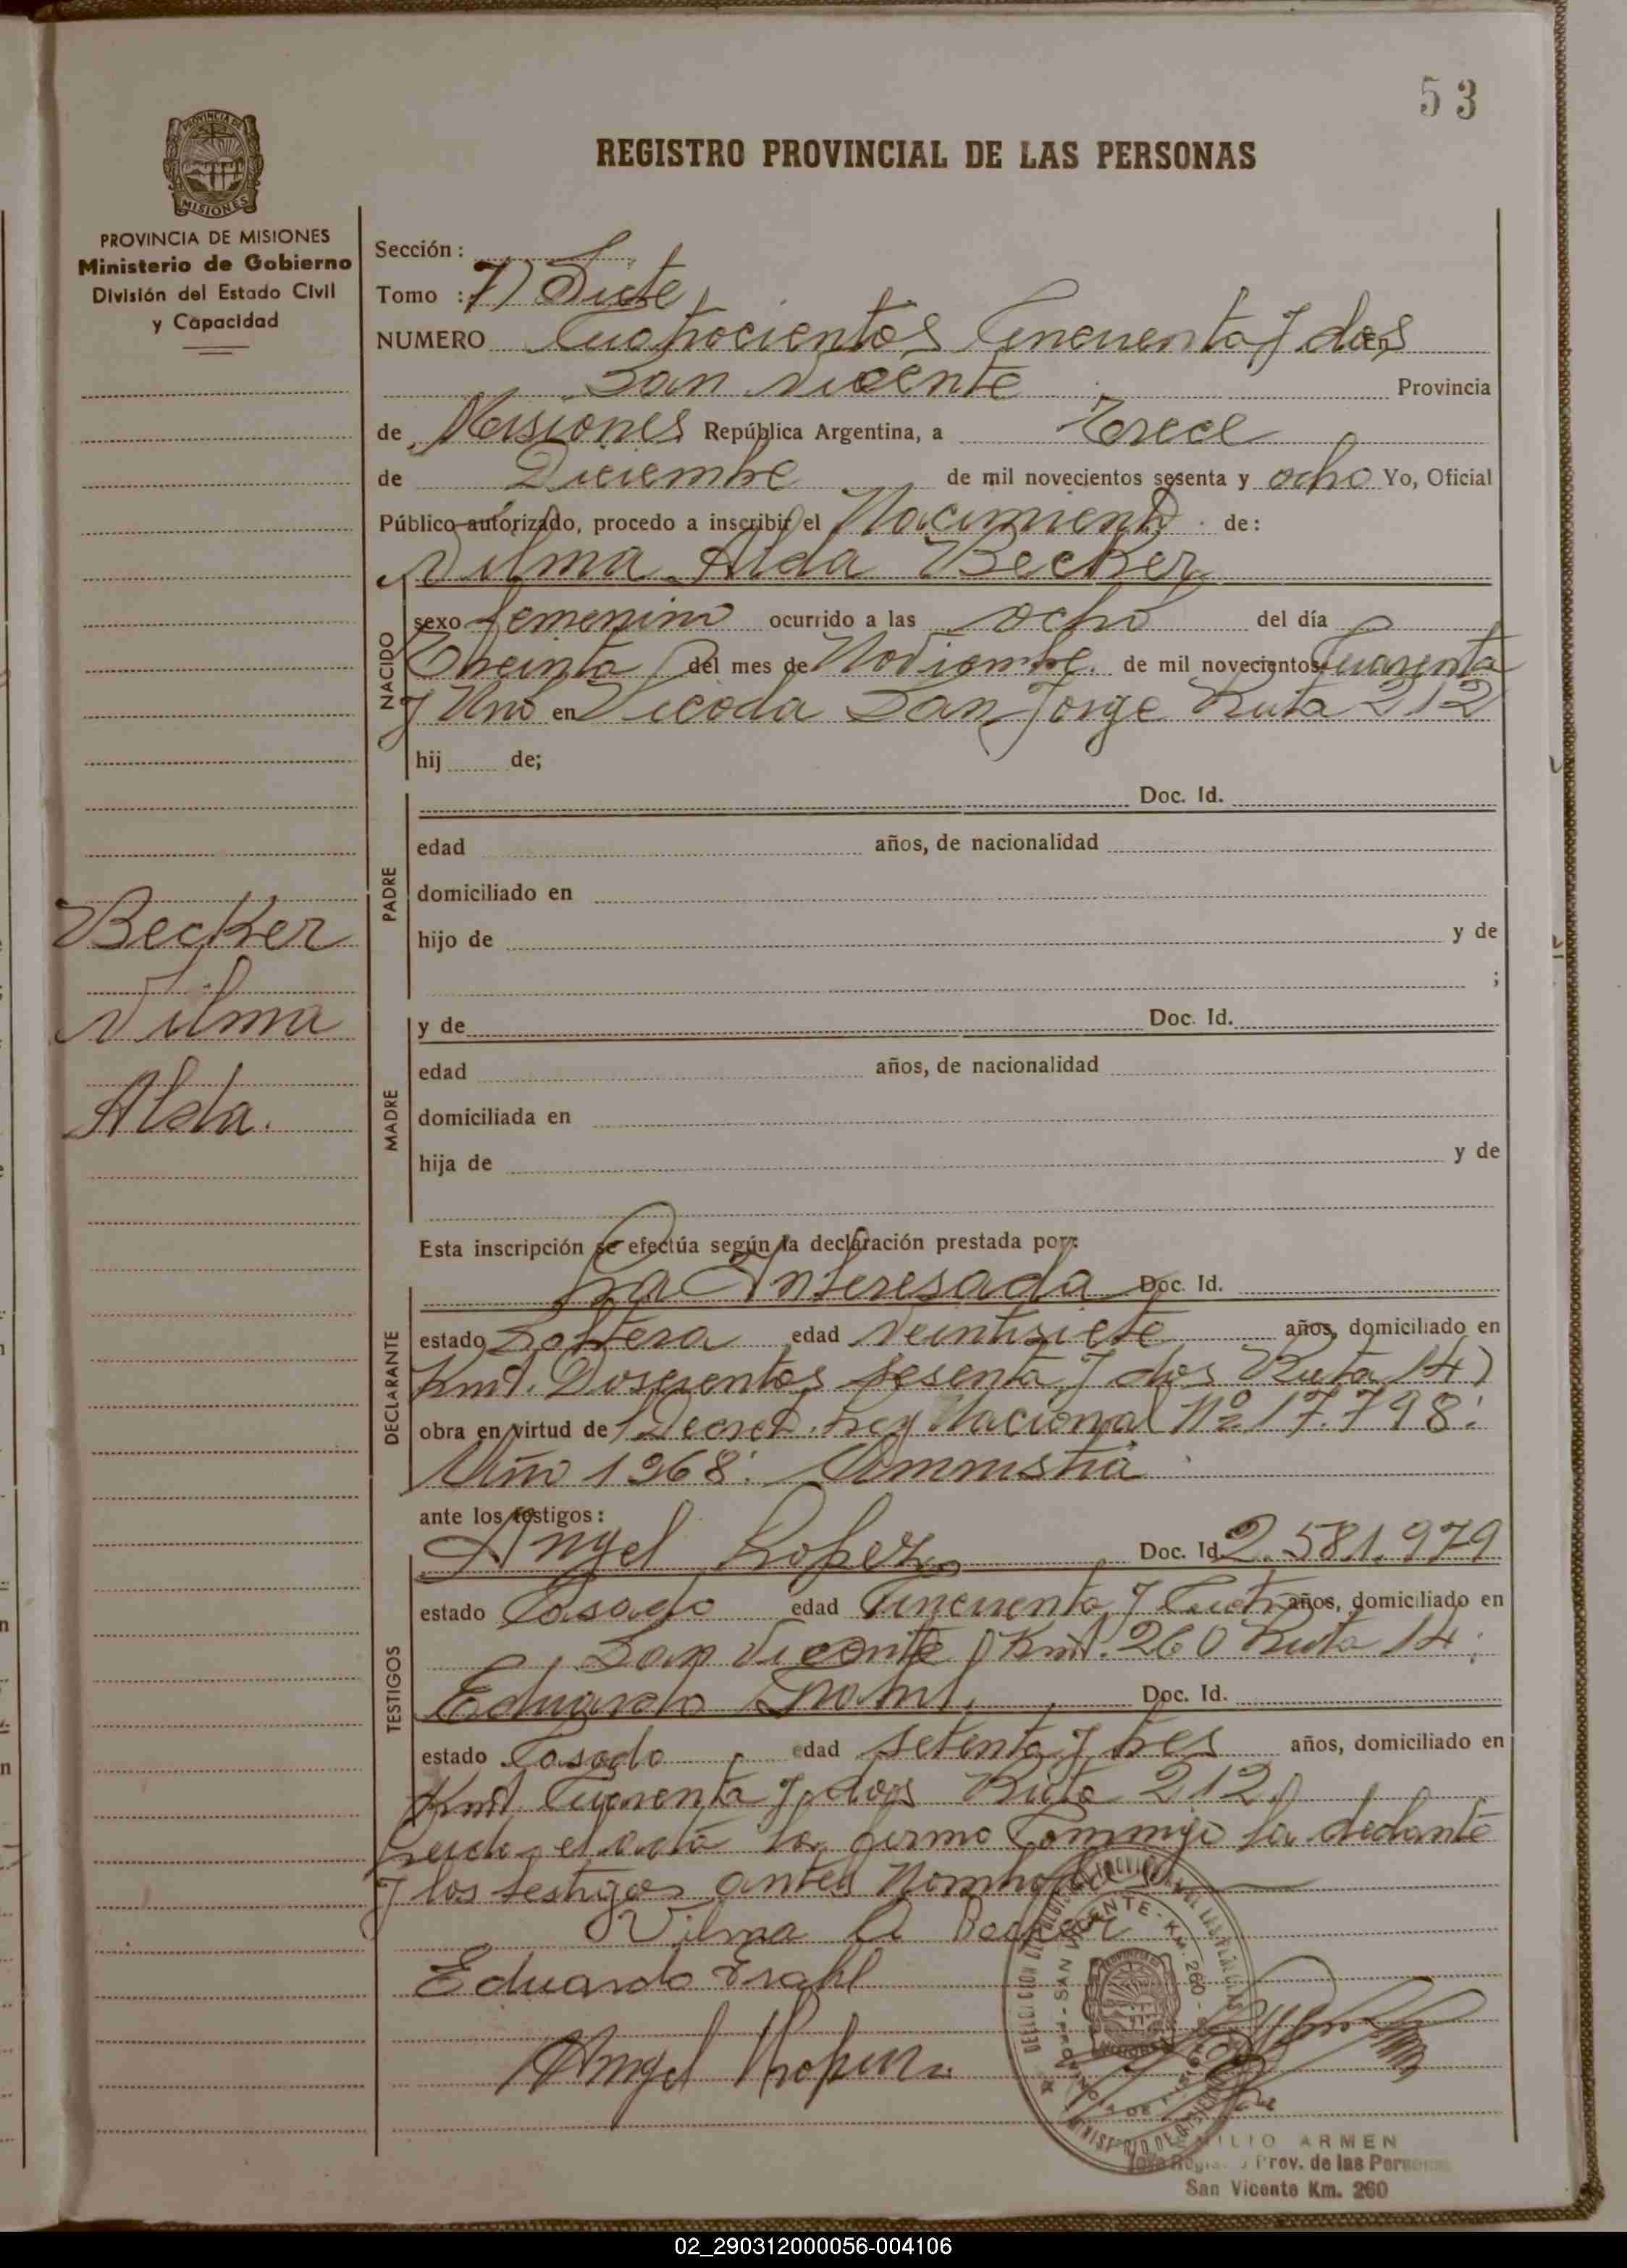 53
REGISTRO PROVINCIAL DE LAS PERSONAS
PROVINCIA DE MISIONES
Ministerio de Gobierno
División del Estado Civil
y Capacidad
Sección :
Tomo : 7) Siete
NUMERO Cuatrocientos Cincuenta y dos en
San Vicente Provincia
de Misiones República Argentina, a Trece
de Diciembre de mil novecientos sesenta y ocho Yo, Oficial
Público autorizado, procedo a inscribir el Nacimiento de:
Vilma Alda Becker
NACIDO
sexo femenino ocurrido a las ocho del día
Treinta del mes de Noviembre de mil novecientos Cuarenta
y Uno en Picada San Jorge Ruta 212
hij de;
PADRE
Doc. Id.
edad años, de nacionalidad
domiciliado en
hijo de y de
;
Becker
Vilma
Alda.
MADRE
y de Doc. Id.
edad años, de nacionalidad
domiciliada en
hija de y de
Esta inscripción se efectúa según la declaración prestada por:
DECLARANTE
La Interesada Doc. Id.
estado Soltera edad Veintisiete años, domiciliado en
Kmt. Doscientos sesenta y dos Ruta 14)
obra en virtud de Decret. Ley Nacional Nº 17.798.
Año 1968. Amnistia
ante los testigos :
TESTIGOS
Angel Lopez Doc. Id 2.581.979
estado Casado edad Cincuenta y Cuatro años, domiciliado en
San Vicente Kmt. 260 Ruta 14.
Eduardo Doc. Id.
estado Casado edad setenta y tres años, domiciliado en
Kmt Cuarenta y dos Ruta 212
el acta la firma Commigo la
y los testigos antes
Vilma A Becker
Eduardo
Angel
SAN VICENTE - KM. 260
EMILIO ARMEN
Jefe Prov. de las Personas
San Vicente Km. 260
02_290312000056-004106